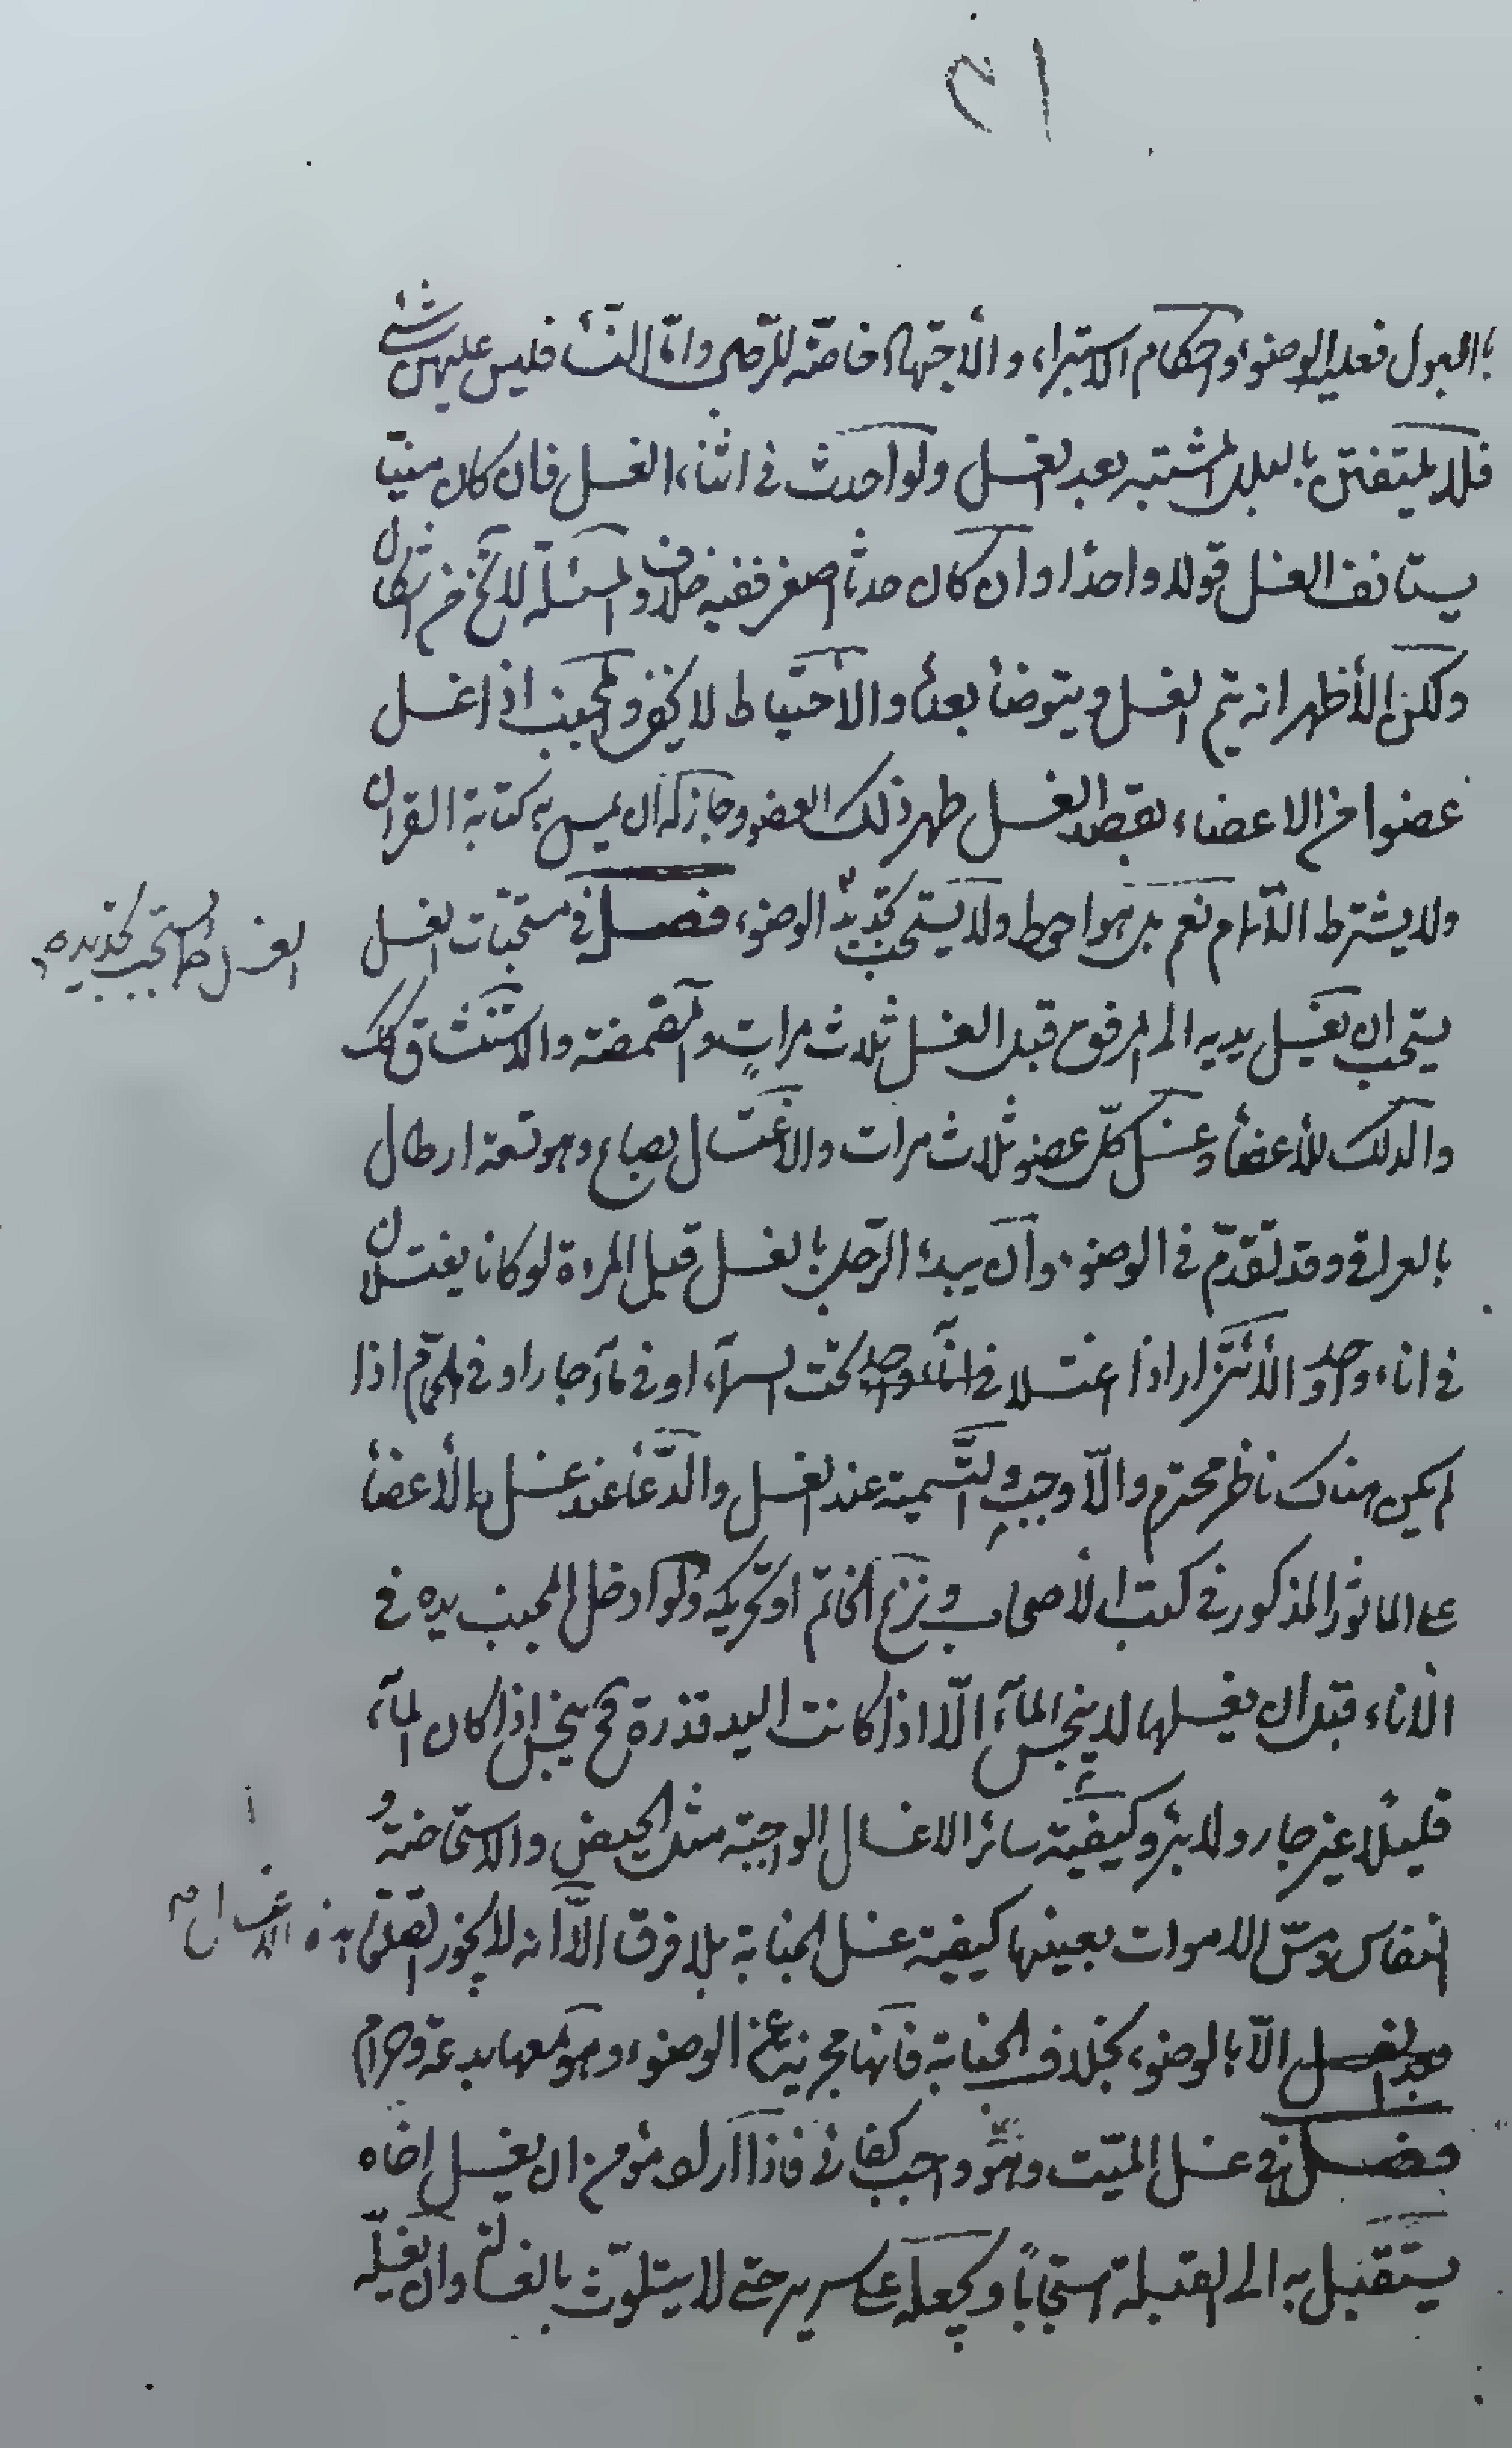 بالبول فعليه الوضوء واحكام الاستبراء والاجتهاد خاصّة للرّجل وامّا النّساء فليس عليهنّ شئ
فلا يلتفتن بالبلل المشتبه بعد الغسل ولو احدث فى اثناء الغسل فان كان منيّا
يستانف الغسل قولا واحدا وان كان حدثا اصغر ففيه خلاف والمسئلة لا تخ من اشكال
ولكن الأظهر انه يتم الغسل ويتوضأ بعده والاحتياط لا يخفى والمجنب اذا غسل
عضوا من الاعضاء بقصد الغسل طهر ذلك العضو وجاز له ان يمس به كتابة القران
ولا يشترط التمام نعم بل هو احوط ولا يستحب تجديد الوضوء فصل فى مستحبّات الغسل
الغسل كما يستحب تجديده
يستحب ان يغسل يديه الى المرفق قبل الغسل ثلاث مرات والمضمضة والاستنشاق كك
والدلك للأعضاء وغسل كلّ عضو ثلاث مرات والاغتسال بصاع وهو تسعة ارطال
بالعراقى وقد تقدّم فى الوضوء وان يبدء الرّجل بالغسل قبل المرءة لو كانا يغتسلان
فى اناء واحد والأتزار اذا اغتسلا فى اناء واحد تحت السمآء او فى مآء جار او فى الحمّام اذا
لم يكن هناك ناظر محترم والّا وجب والتّسمية عند الغسل والدّعاء عند غسل الأعضاء
على الماثور المذكور فى كتب الأصحاب ونزع الخاتم او تحريكه ولو ادخل المجنب يده فى
الاناء قبل ان يغسلها لا ينجس المآء الّا اذا كانت اليد قذرة فح ينجس اذا كان المآء
قليلًا غير جار ولا بئر وكيفيّة سائر الاغسال الواجبة مثل الحيض والاستحاضة و
النفاس ومسّ الاموات بعينها كيفية غسل الجنابة بلا فرق الّا انه لا يجوز الصلوة بهذه الاغسال
الّا بالوضوء بخلاف الجنابة فانّها مجزية عن الوضوء وهو معها بدعة وحرام
فصل فى غسل الميّت وهو واجب كفائى فاذا اراد مؤمن ان يغسل اخاه
يستقبل به الى القبلة استحبابًا ويجعله على سرير حتى لا يتلوّث بالغسالة وان يغسّله